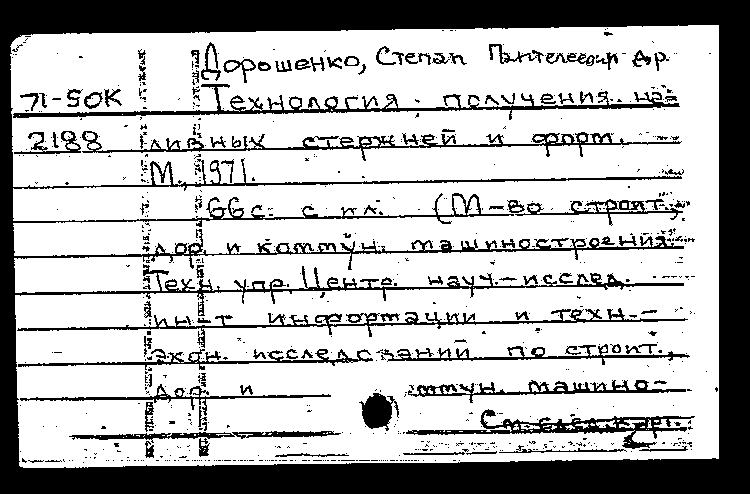 Дорошенко, Степан Пантелеевич и др.
71-50К Технология получения на-
2188 ливных стержней и форм.
М., 1971.
66 с. с ил. (М-во строит.,
дор. и коммун. машиностроения.
Техн. упр. Центр. науч.-исслед.
ин-т информации и техн.-
экон. исследований по строит.,
дор. и коммун. машино-
См. след. карт.